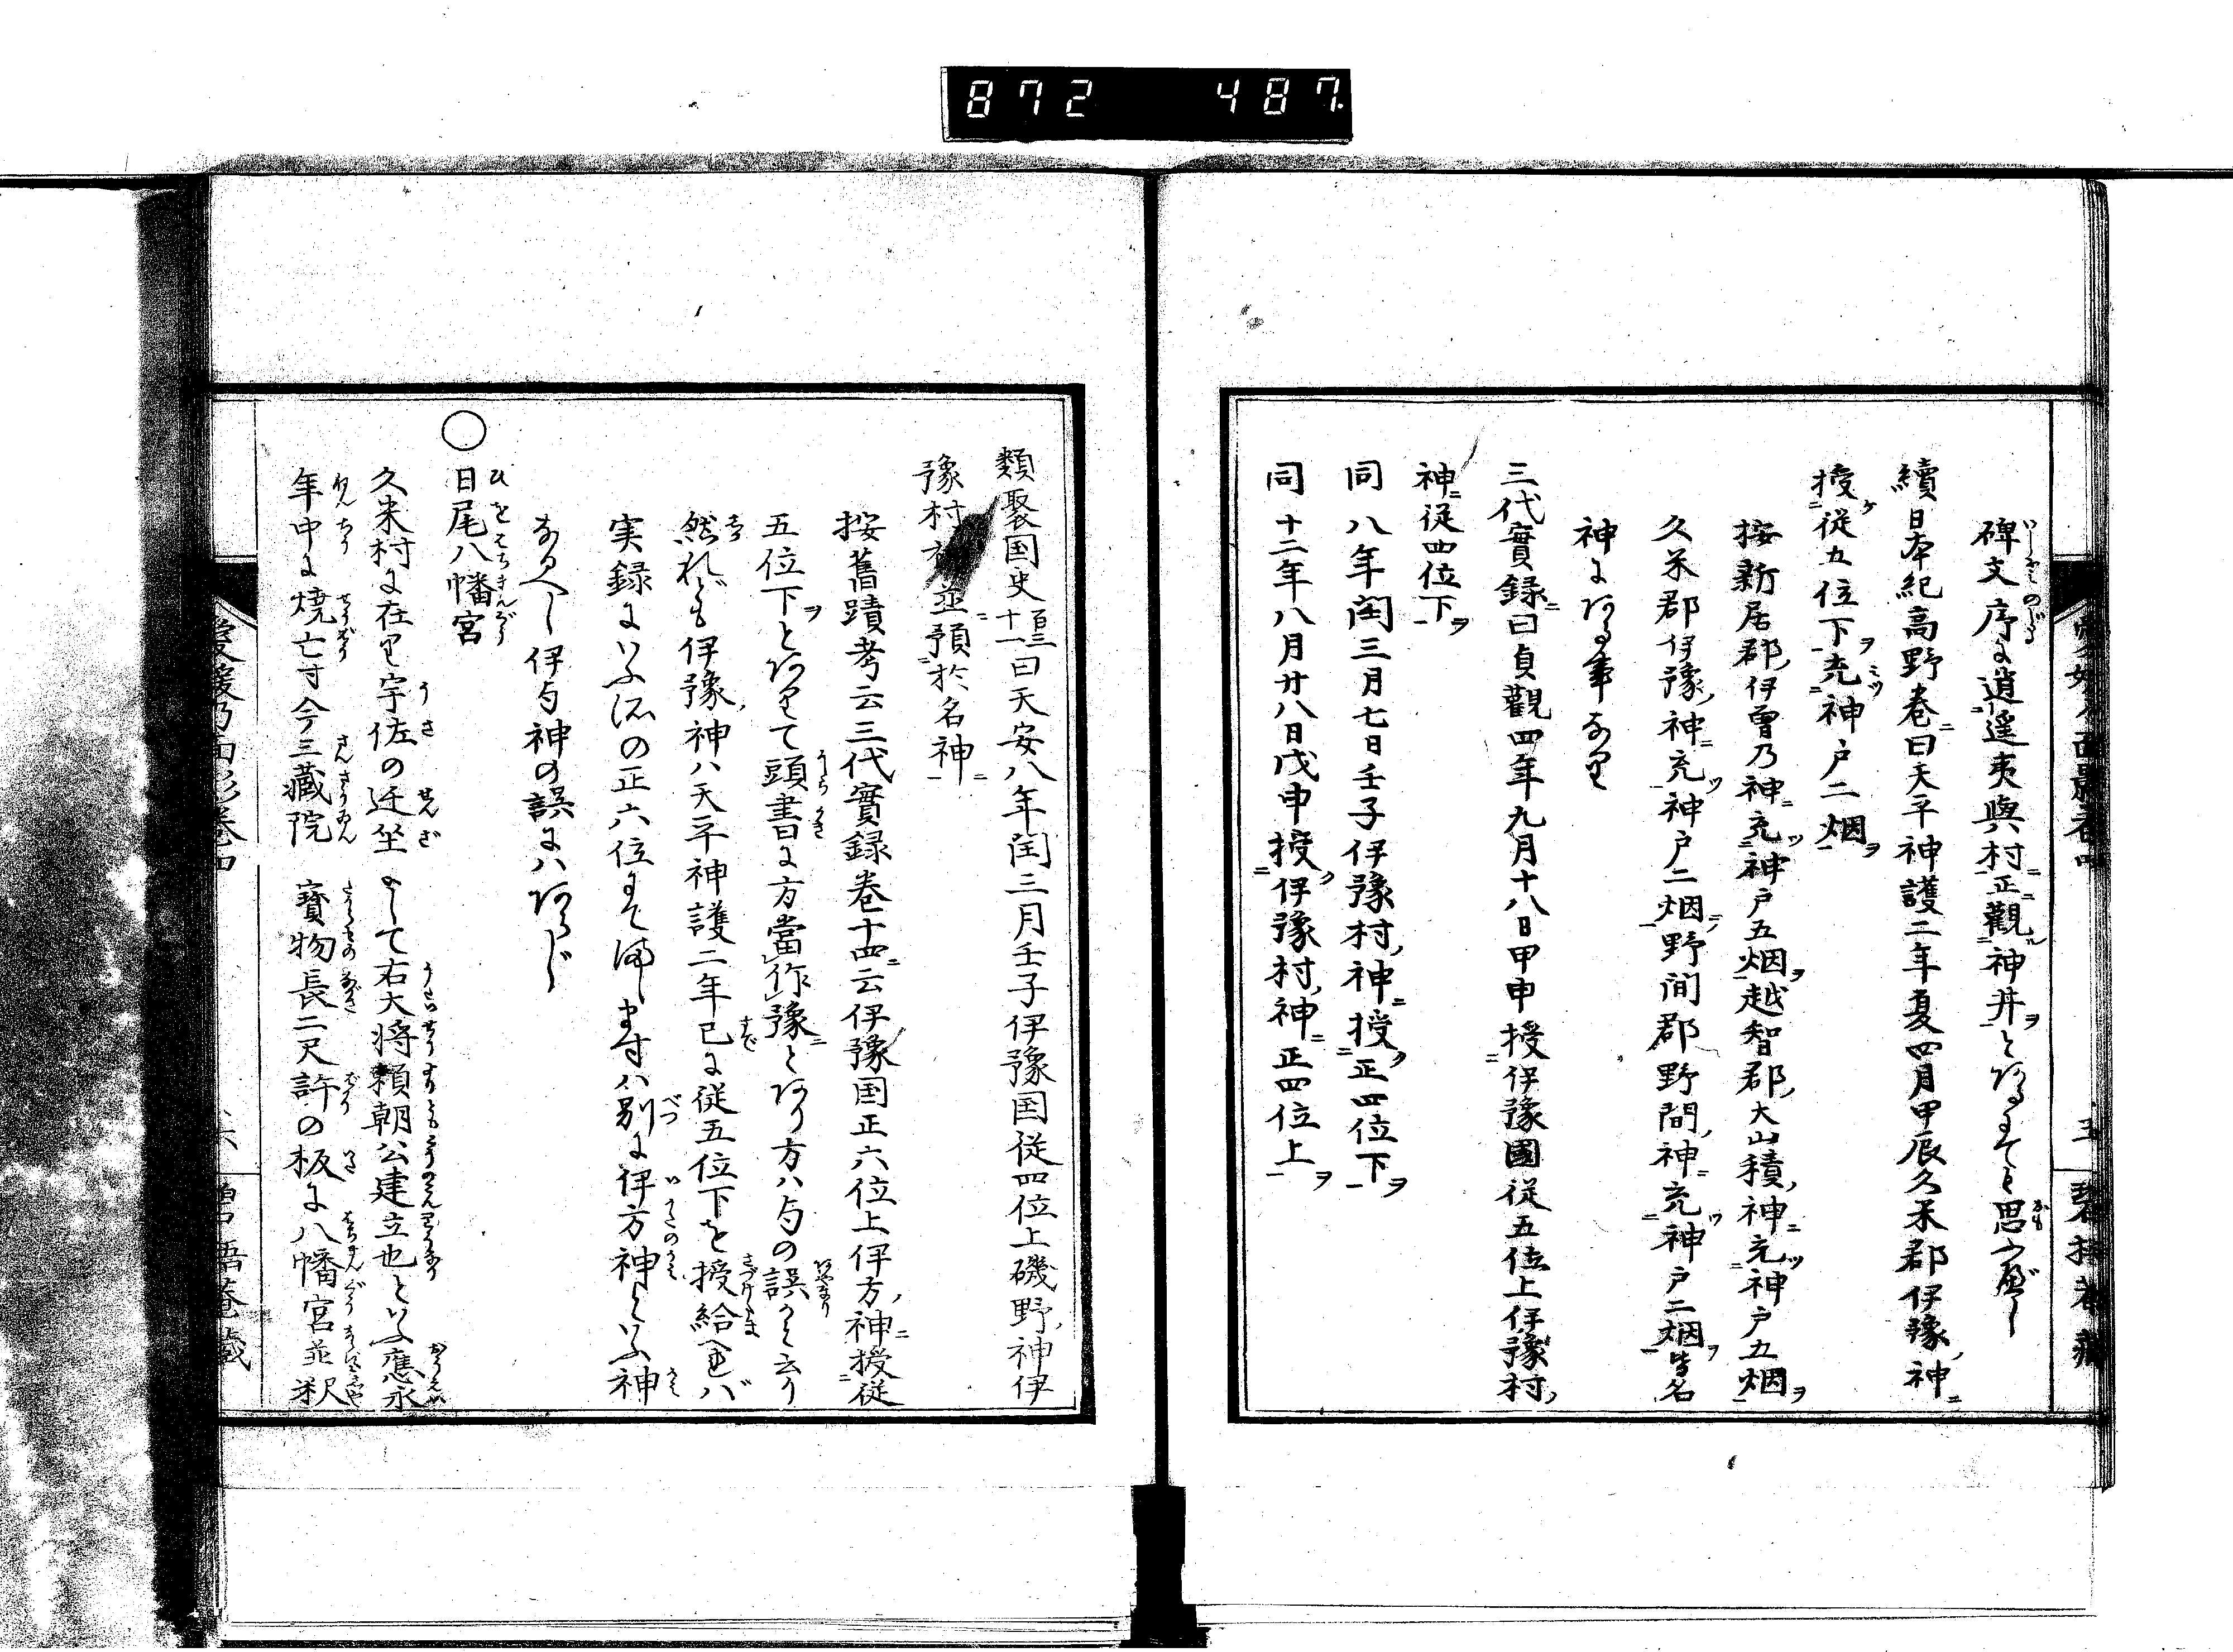 872 487
碑文序に逍遥夷與村ニ正ニ觀ル神井ヲとあるにても思ふべし
續日本紀高野巻ニ曰天平神護二年夏四月甲辰久米郡伊豫ノ神ニ
授ク從五位下ヲ充ツ神戸二烟ヲ
按新居郡ノ伊曽乃神ニ充ツ神戸五烟ヲ越智郡ノ大山積ノ神ニ充ツ神戸五烟ヲ
久米郡伊豫ノ神ニ充ツ神戸二烟ヲ野间郡野間ノ神ニ充ツ神戸二烟ヲ皆名
神にある事なり
三代實録ニ曰貞觀四年九月十八日甲申授伊豫國從五位上伊豫村ノ
神ニ從四位下ヲ
同八年閏三月七日壬子伊豫村ノ神ニ授ク正四位下ヲ
同十二年八月廿八日戊申授ク伊豫村ノ神ニ正四位上ヲ
類聚国史百三十一曰天安八年閏三月壬子伊豫国従四位上磯野ノ神伊
豫村神並預於名神ニ
按舊蹟考云三代實録巻十四ニ云伊豫国正六位上伊方ノ神ニ授従
五位下ヲとありて頭書に方當作豫ニとあり方ハ与の誤かと云り
然れども伊豫ノ神ハ天平神護二年已に従五位下を授給へれバ
実録にいふ所の正六位にてましますハ別に伊方神といふ神
なるべし伊与神の誤にハあらじ
○日尾八幡宮
久米村に在り宇佐の迁坐にして右大将頼朝公建立也といふ應永
年中に焼亡す今三藏院 寳物長二尺許の板に八幡宮並釈
愛媛乃面影巻四
六
碧梧菴藏